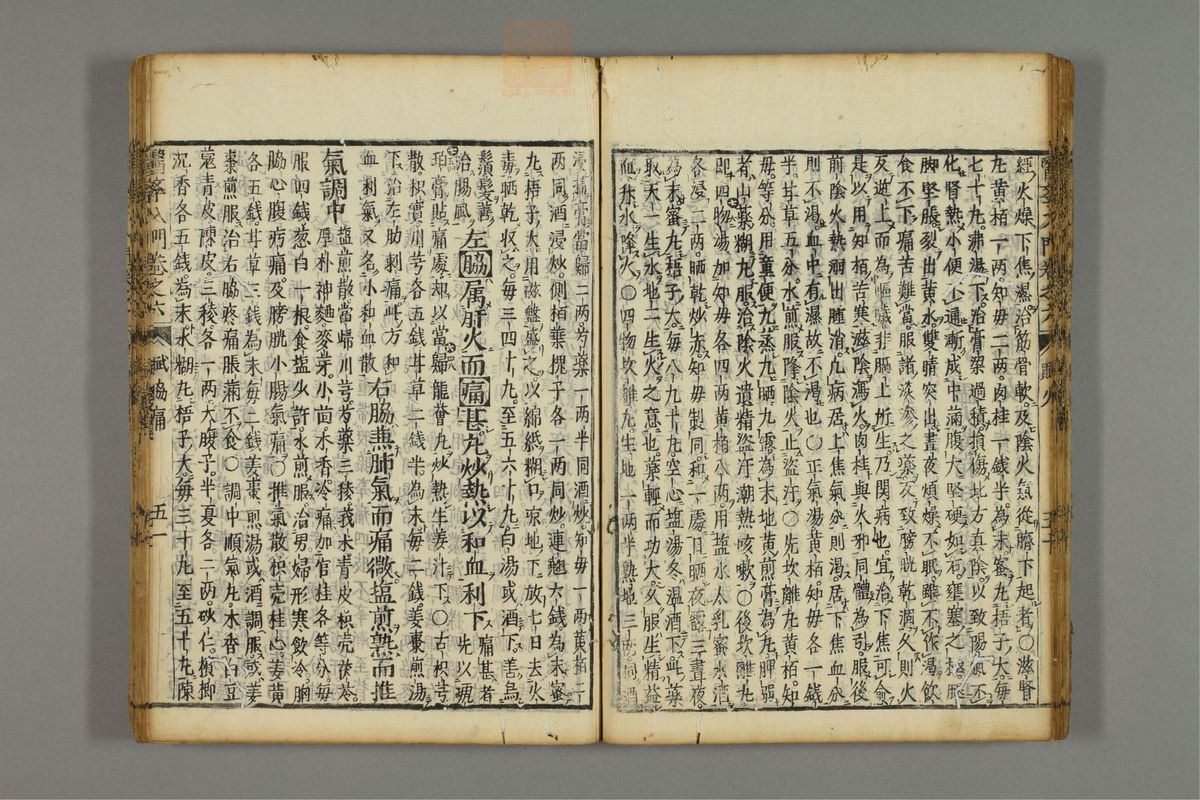 經火燥下焦濕治筋骨軟及陰火氣從臍下起者〇滋腎
丸黃栢一兩知母二兩肉桂一錢半為末蜜丸梧子大每
七十丸沸湯下治膏粱過積損傷北方真陰以致陽氣不
化腎熱小便不通漸成中滿腹大堅硬如石壅塞之極腿
脚堅脹裂出黃水雙睛突出晝夜煩燥不眠雖不作渴飲
食不下痛苦難當服諸淡滲之藥反致膀胱乾涸久則火
反逆上而為嘔噦非膈上所生乃関病也宜治下焦可愈
是以用知栢苦寒滋陰瀉火肉桂與火邪同體為引服後
前陰火熱溺出腫消凡病居上焦氣分則渴居下焦血分
則不渴血中有濕故不渴也〇正氣湯黃栢知母各一錢
半甘草五分水煎服降陰火止盜汗〇先坎離丸黃栢知
母等分用童便九蒸九晒九露為末地黃煎膏為丸脾弱
者山藥糊丸服治陰火遺精盜汗潮熱咳嗽〇後坎離丸
即四物湯加知母各四兩黃栢八兩用塩水人乳蜜水酒
各浸二兩晒乾炒赤知母製同和一處日晒夜露三晝夜
為末蜜丸梧子大每八九十丸空心塩湯冬溫酒下此藥
取天一生水地二生火之意也藥輕而功大久服生精益
血升水降火〇四物坎離丸生地一兩半熟地三兩同酒
浸搗膏當歸二兩芍藥一兩半同酒炒知母一兩黃栢二
兩同酒浸炒側栢葉槐子各一兩同炒連翹六錢為末蜜
丸梧子大用磁盤盛之以綿紙糊口凉地下放七日去火
毒晒乾收之每三四十丸至五六十丸白湯或酒下善烏
鬚髮善治腸風
左脇属肝火而痛甚丸炒熱以和血利下
痛甚者先以琥
珀膏貼痛處却以當歸龍薈丸炒熱生姜汁下〇古枳芎
散枳實川芎各五錢甘草二錢半為末每二錢姜棗煎湯
下治左肋刺痛此方和血利氣又名小和血散
右脇兼肺氣而痛微塩煎熟而推
氣調中
塩煎散當歸川芎芍藥三稜莪朮青皮枳殼茯苓
厚朴神麯麥芽小茴木香冷痛加官桂各等分每
服四錢葱白一根食塩少許水煎服治男婦形寒飲冷胸
脇心腹疞痛及膀胱小腸氣痛〇推氣散枳殼桂心姜黃
各五錢甘草三錢為末每二錢姜棗煎湯或酒調服或姜
棗煎服治右脇疼痛脹滿不食〇調中順氣丸木香白豆
蔻青皮陳皮三稜各一兩大腹子半夏各二兩砂仁檳榔
沉香各五錢為末水糊丸梧子大每三十丸至五十丸陳
醫學入門卷之六
賦脇痛
五一